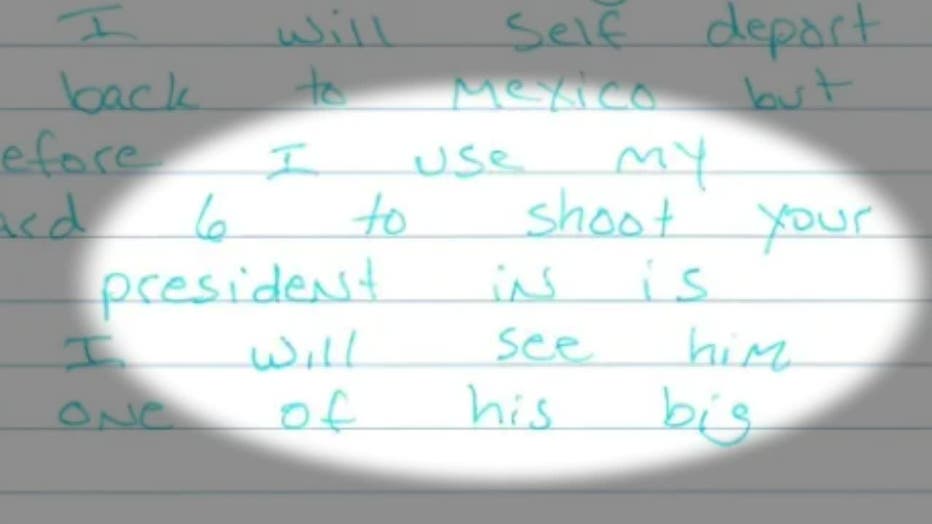 I will self deport
back to Mexico but
efore I use my
ard 6 to shoot your
president in is
I will see him
one of his big